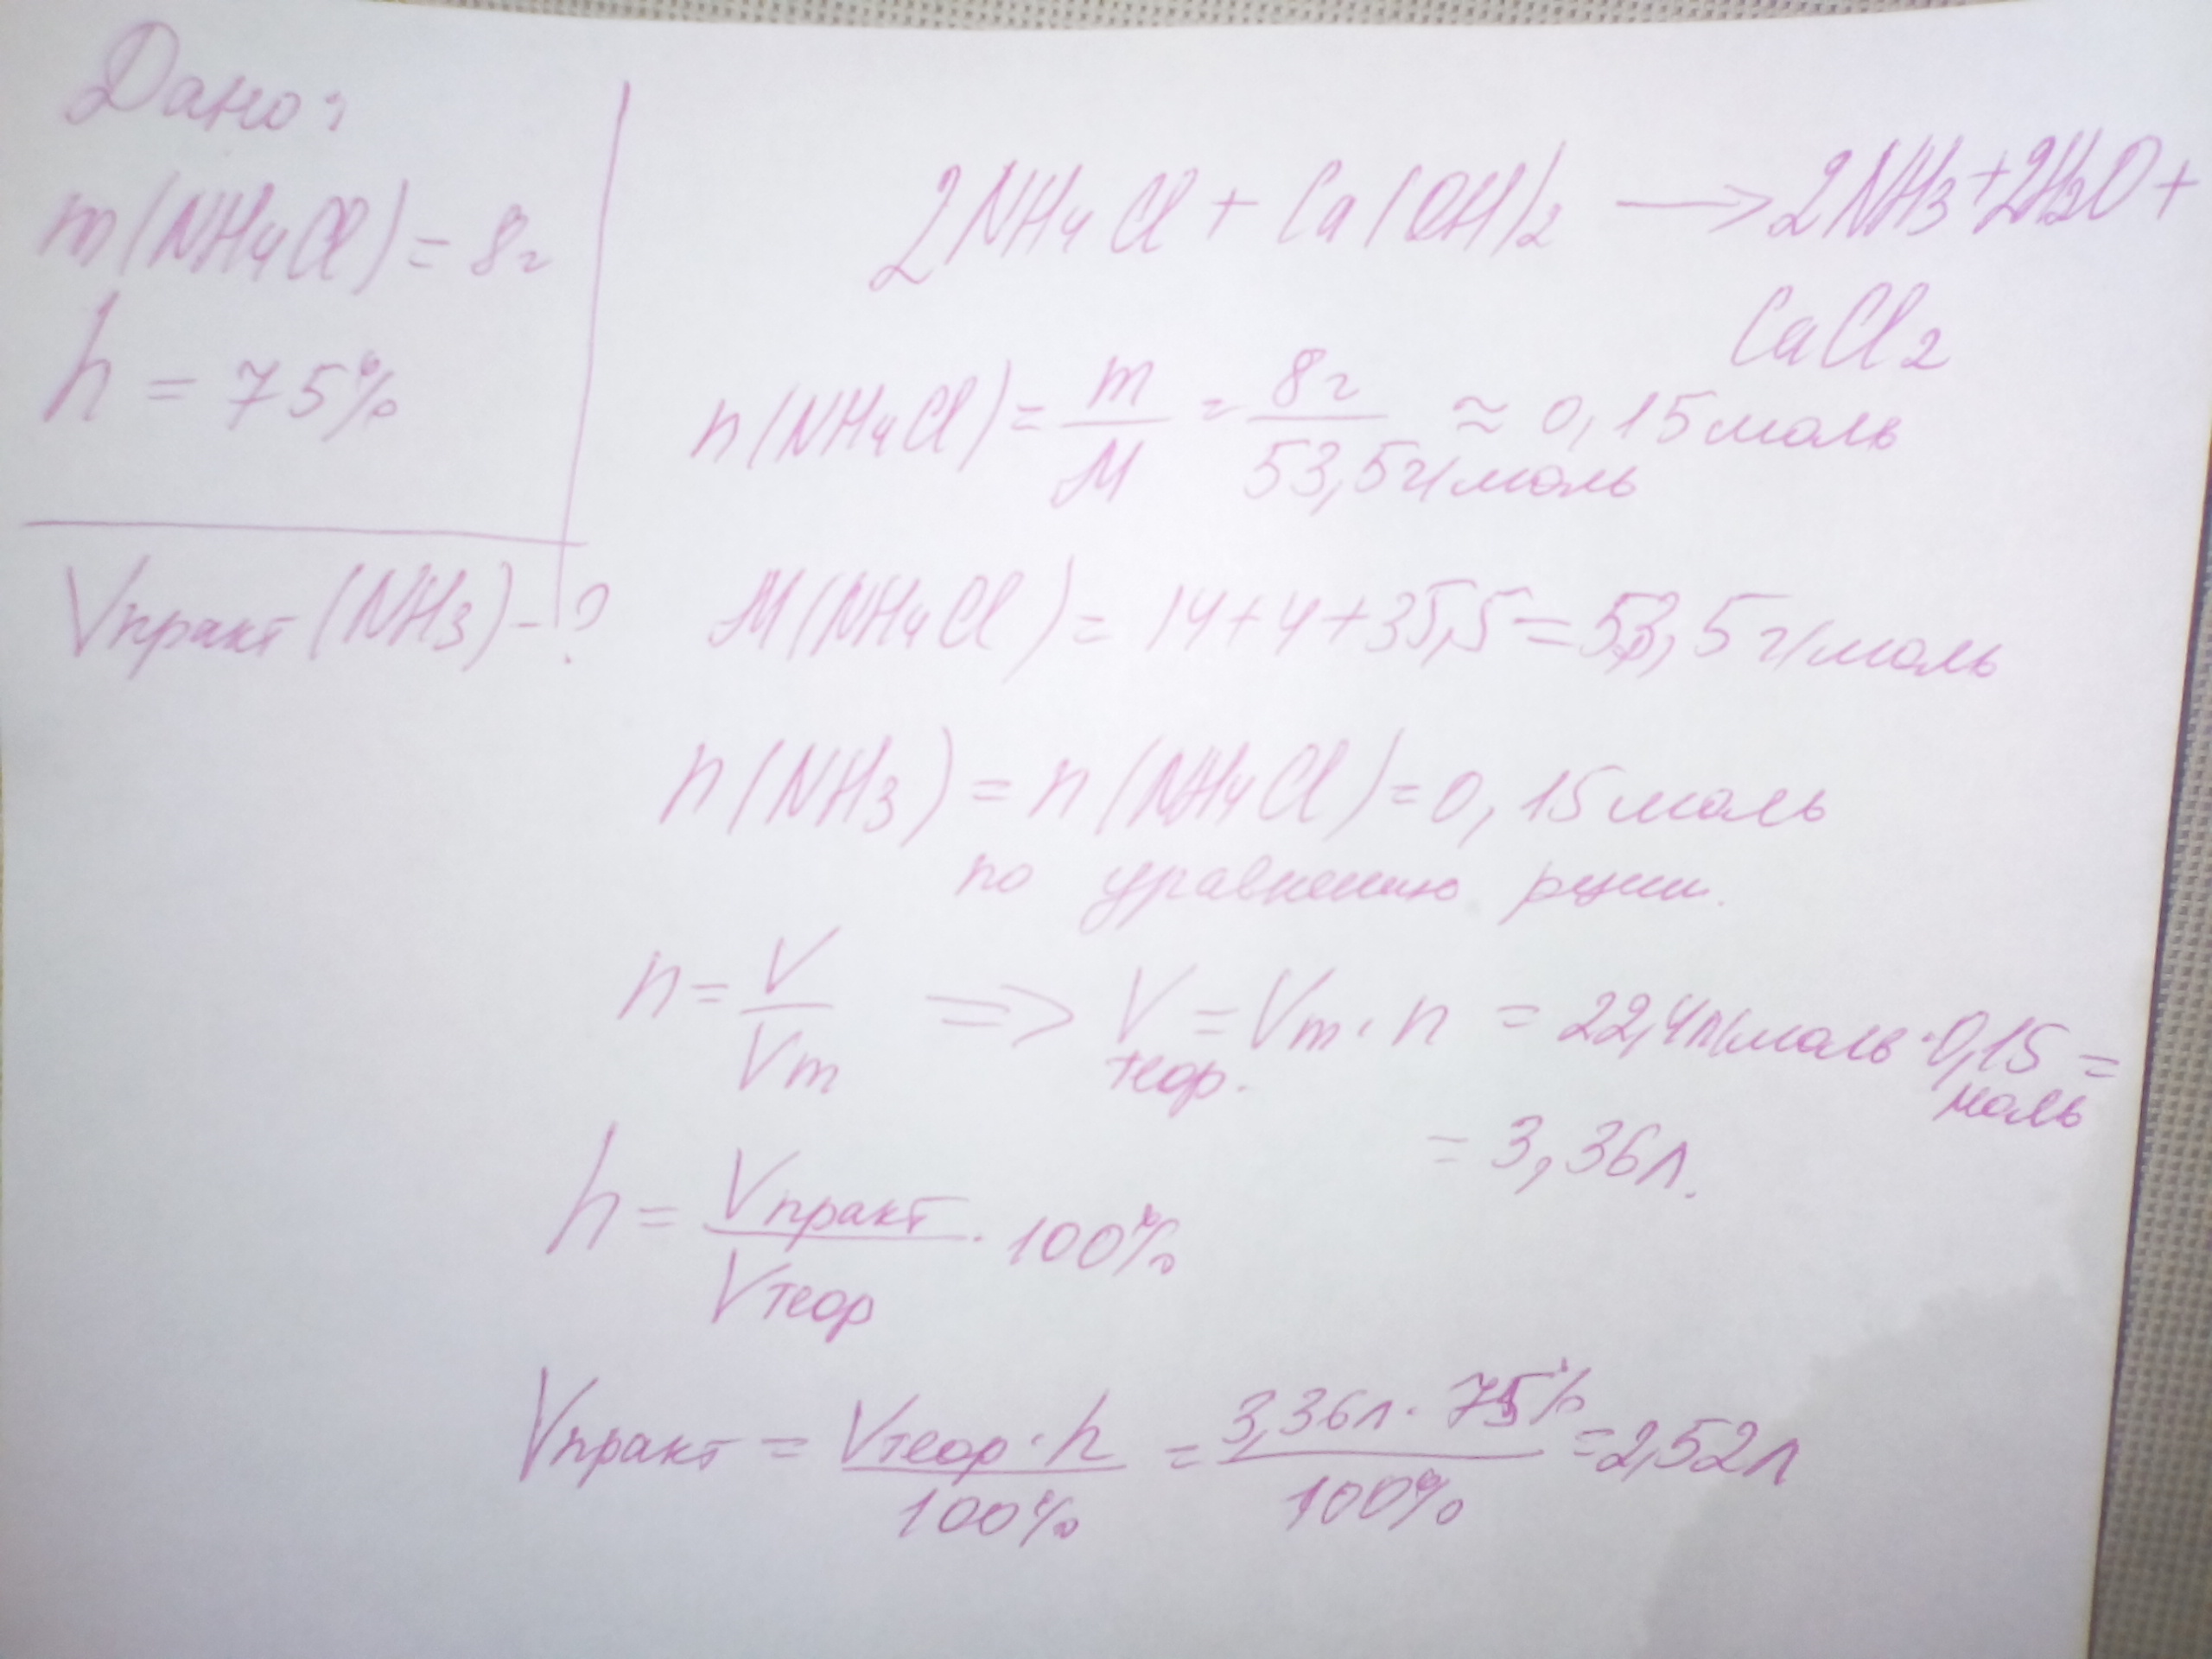 Дано:
m(NH4Cl) = 8г
h = 75%
Vпракт (NH3) - ?
2NH4Cl + Ca(OH)2 → 2NH3 + 2H2O +
CaCl2
n(NH4Cl) = m/M = 8г/53,5г/моль ≈ 0,15моль
M(NH4Cl) = 14+4+35,5 = 53,5г/моль
n(NH3) = n(NH4Cl) = 0,15моль
по уравнению рции.
n = V/Vm => Vтеор. = Vm · n = 22,4л/моль · 0,15 моль =
= 3,36л.
h = Vпракт/Vтеор · 100%
Vпракт = Vтеор · h/100% = 3,36л · 75%/100% = 2,52л